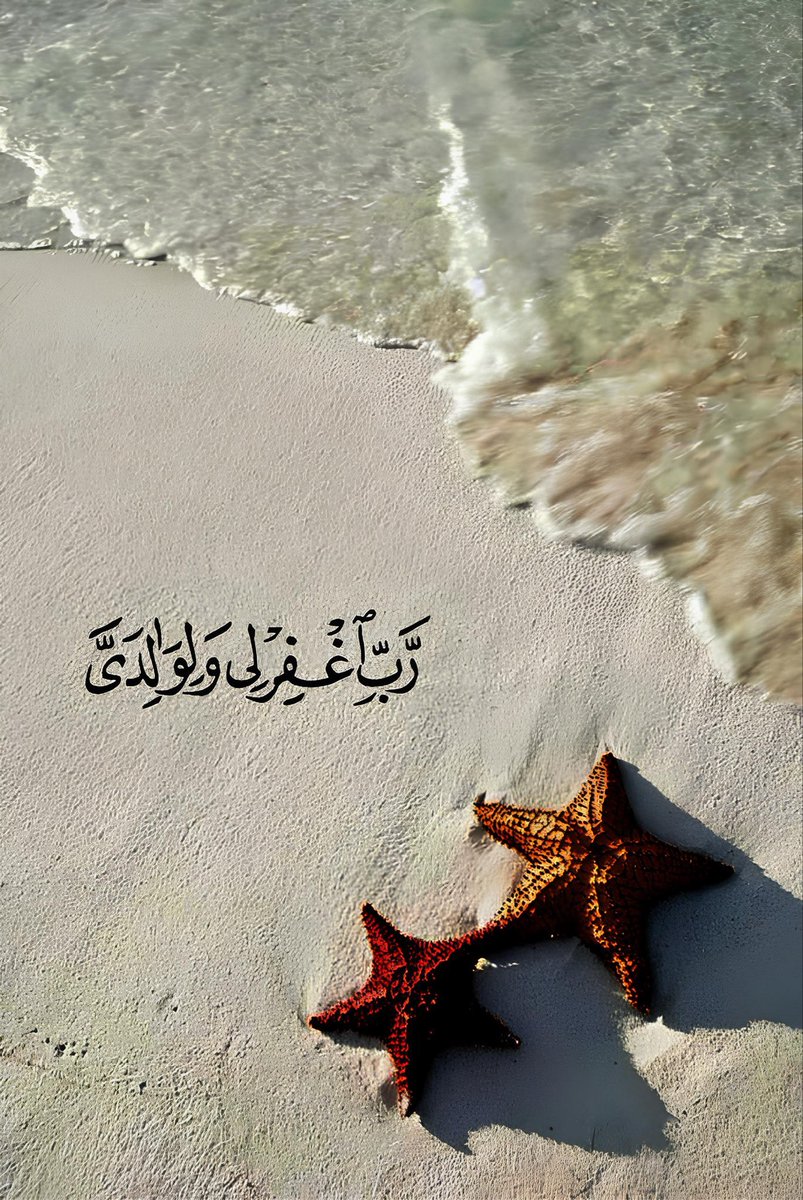 رَّبِّ ٱغْفِرْ لِى وَلِوَٰلِدَىَّ